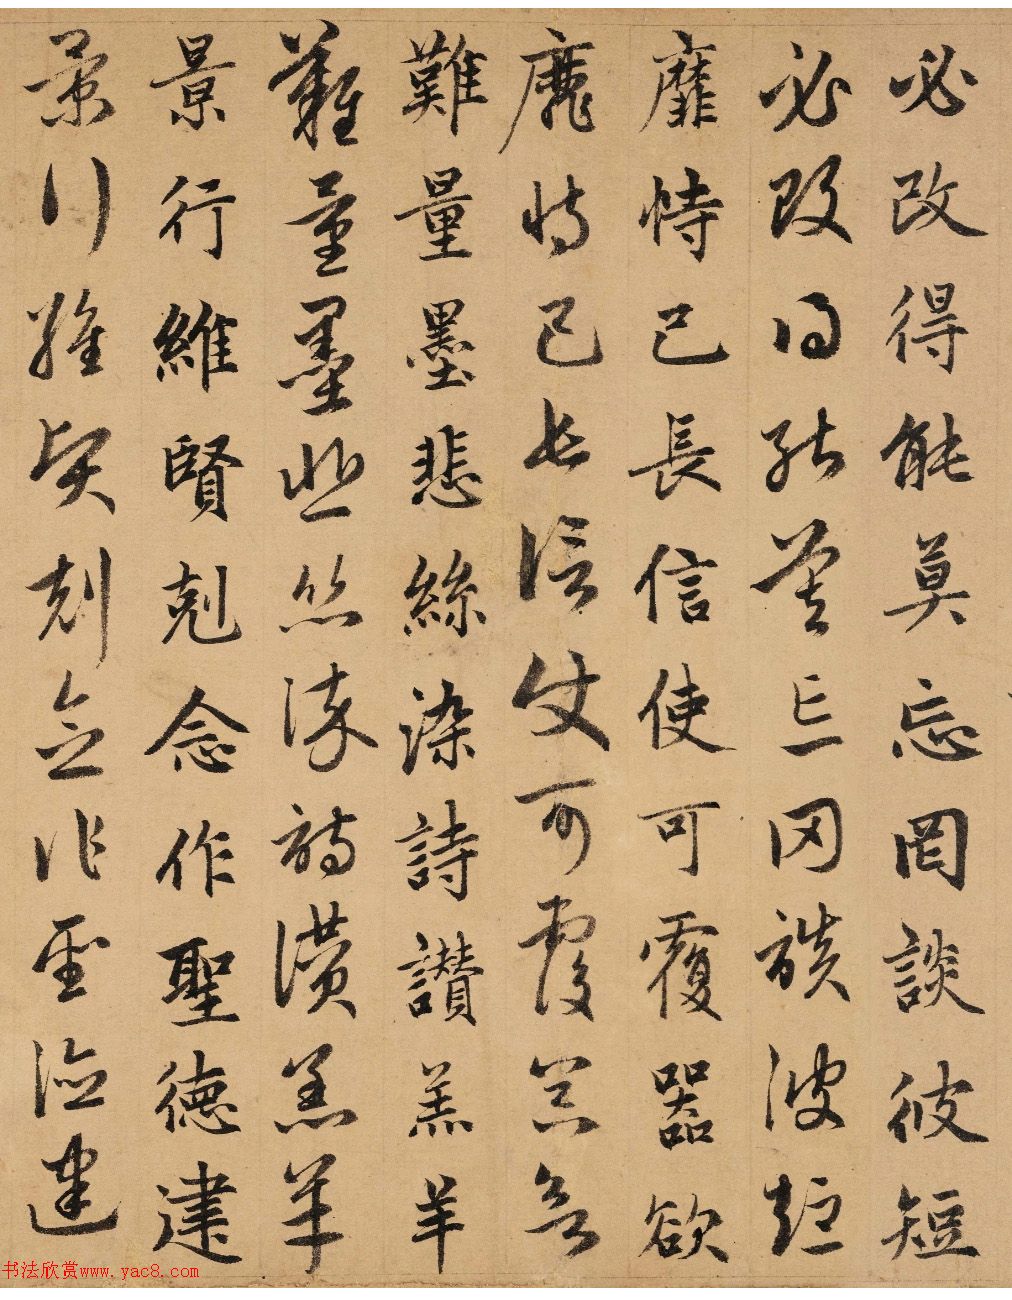 必改得能莫忘罔談彼短
必改得能莫忘罔談彼短
靡恃己長信使可覆器欲
靡恃己長信使可覆器欲
難量墨悲絲染詩讚羔羊
難量墨悲絲染詩讚羔羊
景行維賢剋念作聖德建
景行維賢剋念作聖德建
书法欣赏www.yac8.com